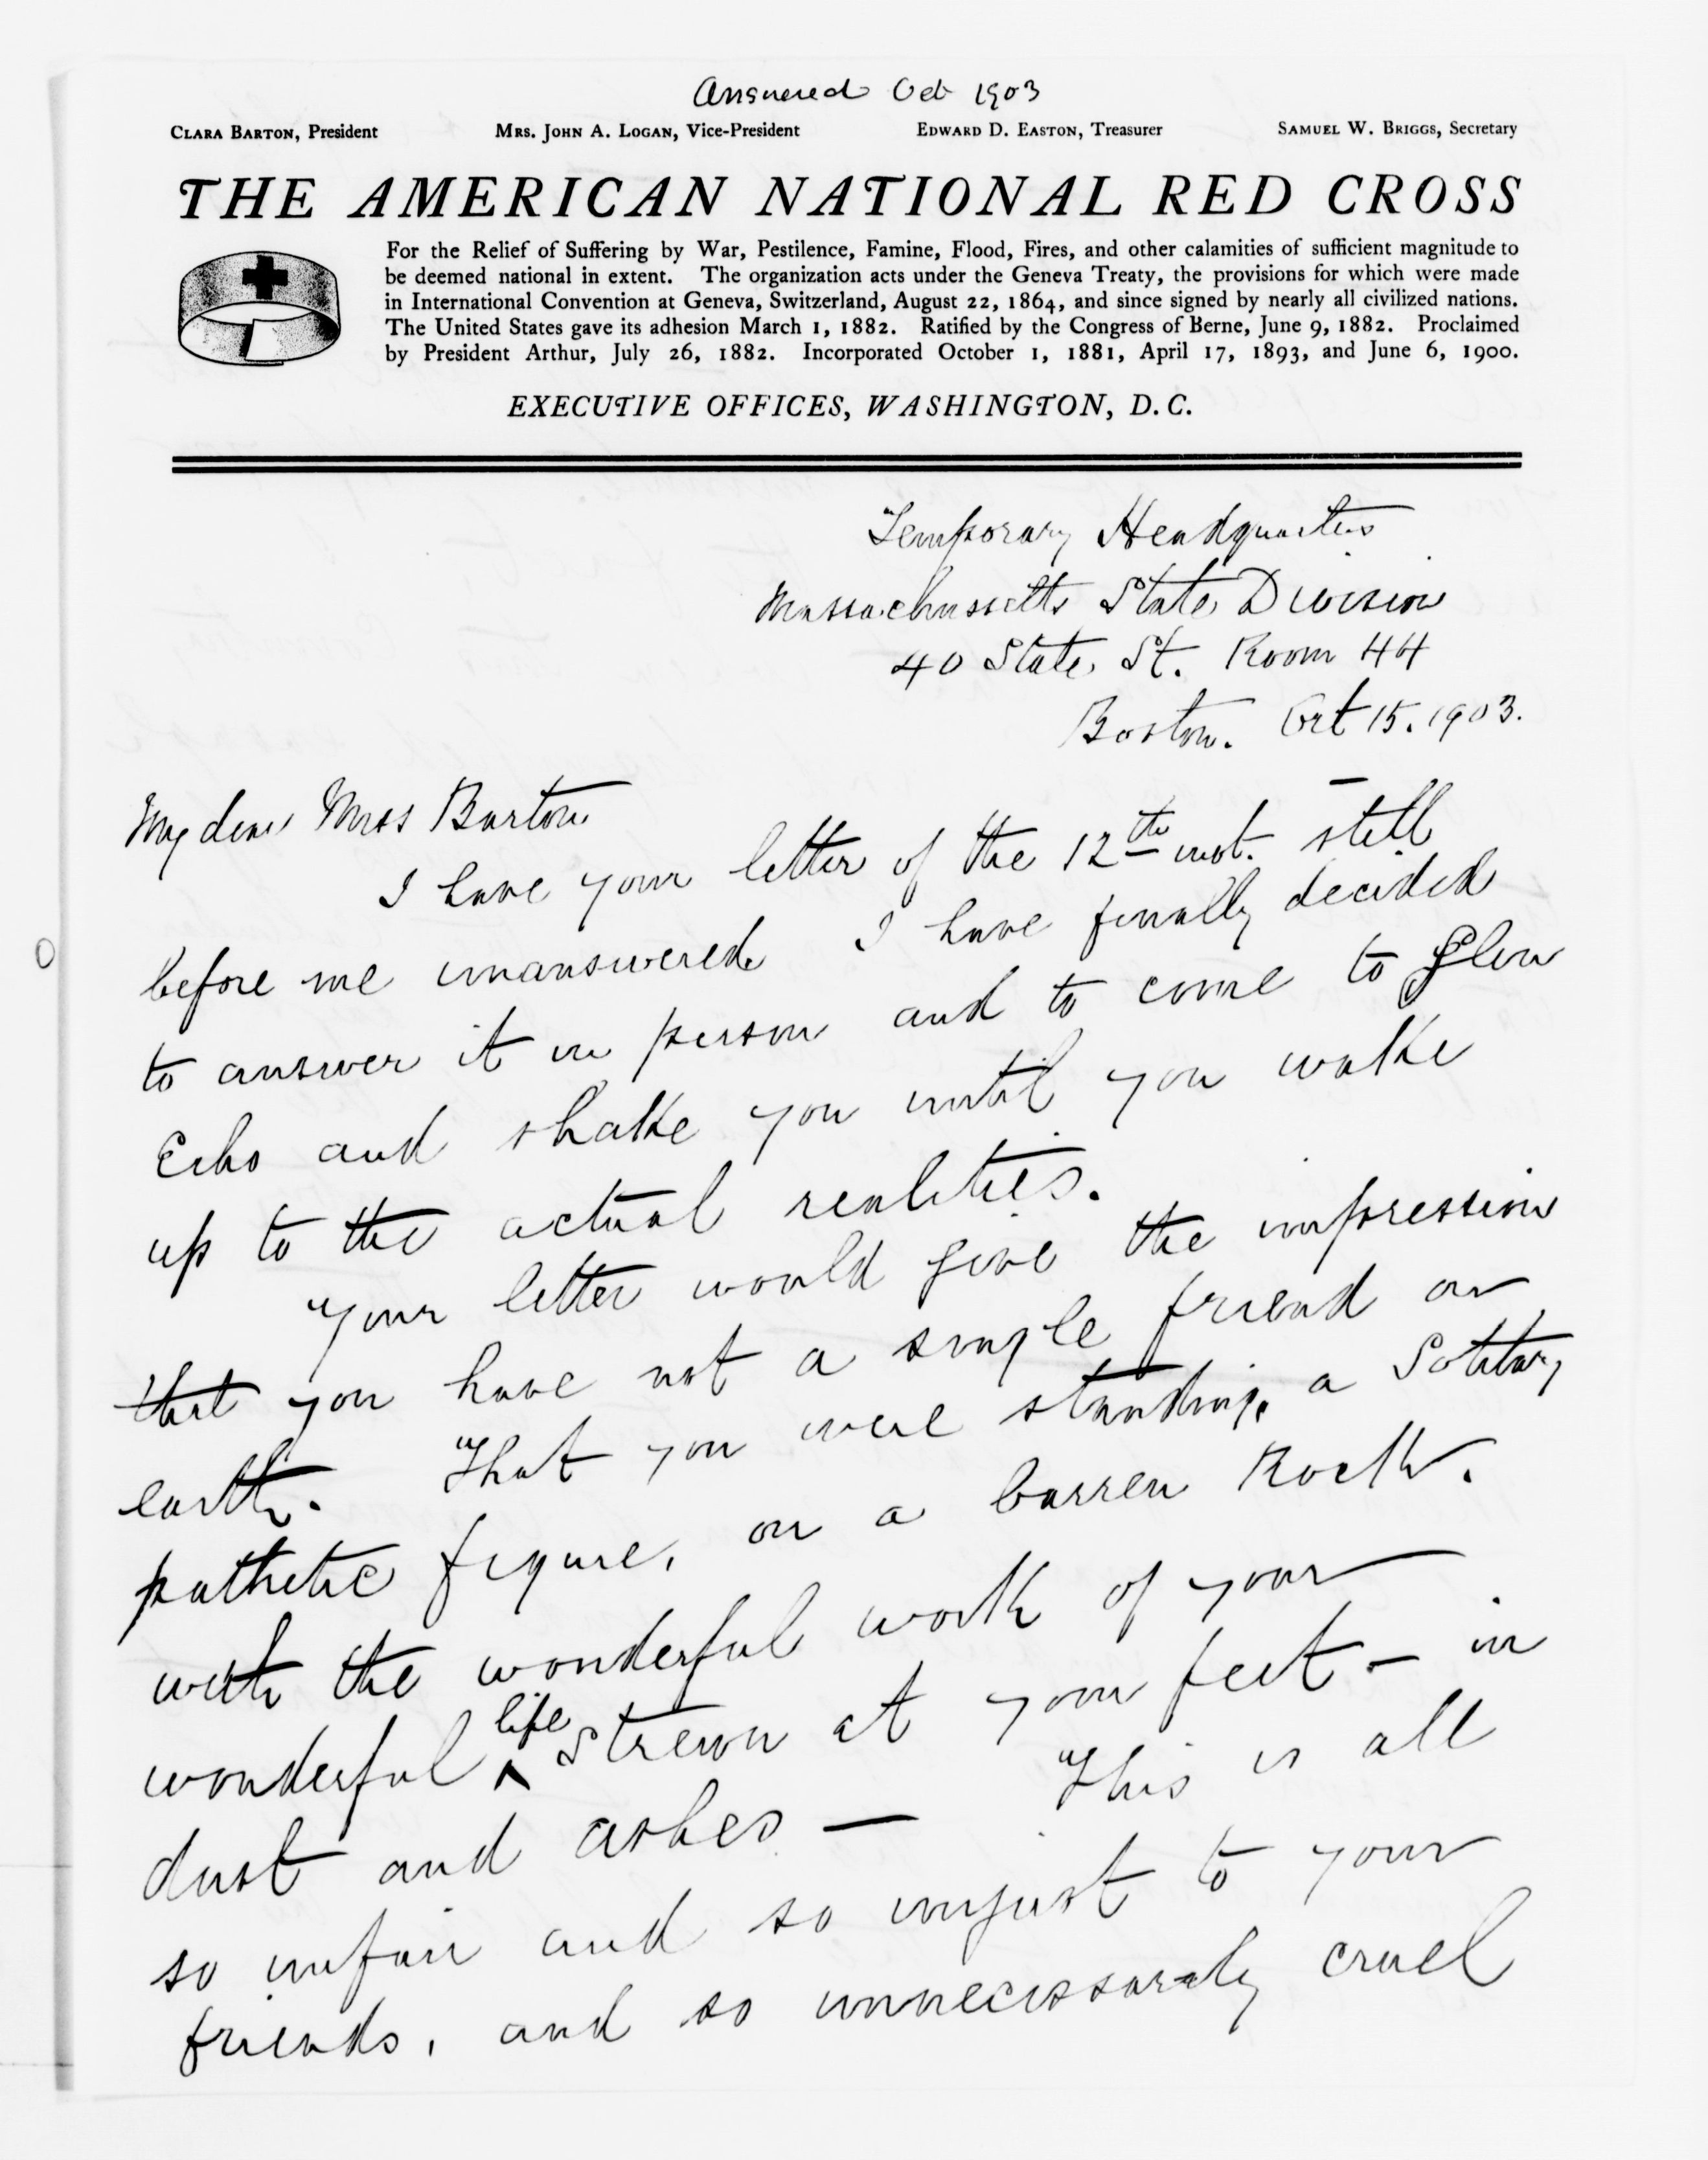 Answered Oct 1903
CLARA BARTON, President MRS. JOHN A. LOGAN, Vice-President EDWARD D. EASTON, Treasurer SAMUEL W. BRIGGS, Secretary
THE AMERICAN NATIONAL RED CROSS
For the Relief of Suffering by War, Pestilence, Famine, Flood, Fires, and other calamities of sufficient magnitude to
be deemed national in extent. The organization acts under the Geneva Treaty, the provisions for which were made
in International Convention at Geneva, Switzerland, August 22, 1864, and since signed by nearly all civilized nations.
The United States gave its adhesion March 1, 1882. Ratified by the Congress of Berne, June 9, 1882. Proclaimed
by President Arthur, July 26, 1882. Incorporated October 1, 1881, April 17, 1893, and June 6, 1900.
EXECUTIVE OFFICES, WASHINGTON, D. C.
Temporary Headquarters
Massachusetts State Division
40 State St. Room 44
Boston. Oct 15. 1903.
My dear Miss Barton
I have your letter of the 12th inst. still
before me unanswered. I have finally decided
to answer it in person and to come to Glen
Echo and shake you until you wake
up to the actual realities.
Your letter would give the impression
that you have not a single friend on
earth. That you were standing, a Solitary
pathetic figure, on a barren Rock.
with the wonderful work of your
wonderful ^life strewn at your feet - in
dust and ashes — This is all
so unfair and so unjust to your
friends, and so unnecessarily cruel